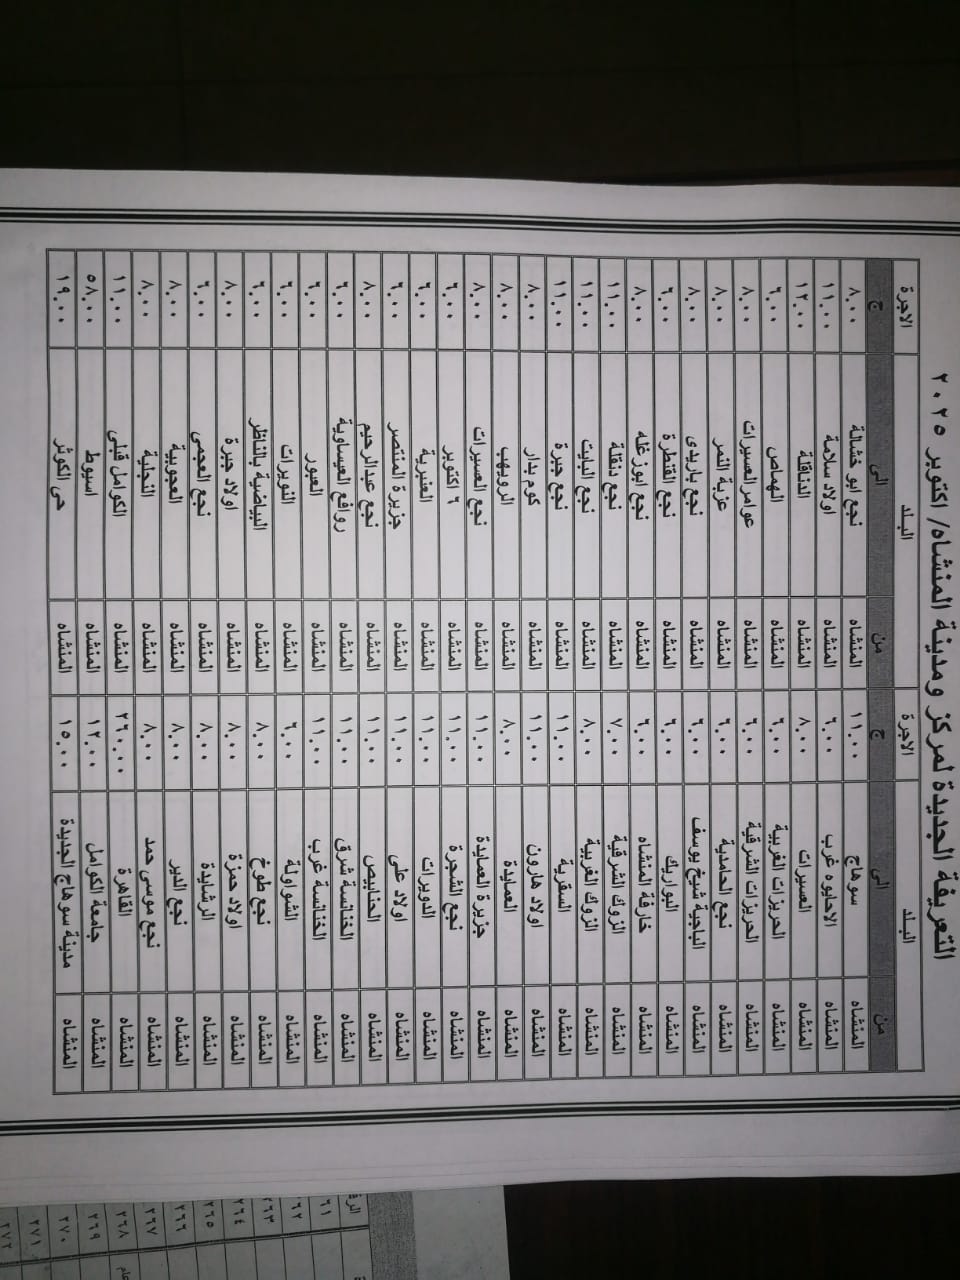 التعريفة الجديدة لمركز ومدينة المنشاه/ اكتوبر ٢٠٢٥
البلد الاجرة البلد الاجرة
من الى ج من الى ج
المنشاه سوهاج ١١.٠٠ المنشاه نجع ابو خشالة ٨.٠٠
المنشاه الاحايوه غرب ٦.٠٠ المنشاه اولاد سلامة ١١.٠٠
المنشاه العسيرات ٨.٠٠ المنشاه الدناقلة ١٢.٠٠
المنشاه الحريزات الغربية ٦.٠٠ المنشاه الهماص ٦.٠٠
المنشاه الحريزات الشرقية ٦.٠٠ المنشاه عوامر العسيرات ٨.٠٠
المنشاه نجع الحامدية ٦.٠٠ المنشاه عزبة النمر ٨.٠٠
المنشاه الباجية شيخ يوسف ٦.٠٠ المنشاه نجع باريدى ٨.٠٠
المنشاه البواريك ٦.٠٠ المنشاه نجع القنطرة ٦.٠٠
المنشاه خارفة المنشاه ٦.٠٠ المنشاه نجع ابوزغله ٨.٠٠
المنشاه الزوك الشرقية ٧.٠٠ المنشاه نجع دنقلة ١١.٠٠
المنشاه الزوك الغربية ٨.٠٠ المنشاه نجع البابت ١١.٠٠
المنشاه السقرية ١١.٠٠ المنشاه نجع جبرة ١١.٠٠
المنشاه اولاد هارون ١١.٠٠ المنشاه كوم بدار ٨.٠٠
المنشاه العمايدة ٨.٠٠ المنشاه الرويهب ٨.٠٠
المنشاه جزيرة العمايدة ١١.٠٠ المنشاه نجع العسيرات ٨.٠٠
المنشاه نجع الشجرة ١١.٠٠ المنشاه ٦ اكتوبر ٦.٠٠
المنشاه الدويرات ١١.٠٠ المنشاه العنبرية ٦.٠٠
المنشاه اولاد على ١١.٠٠ المنشاه جزيرة المنتصر ٦.٠٠
المنشاه الحنابيص ١١.٠٠ المنشاه نجع عبدالرحيم ٨.٠٠
المنشاه الخنانسة شرق ١١.٠٠ المنشاه روافع العيساوية ٦.٠٠
المنشاه الخنانسة غرب ١١.٠٠ المنشاه العبور ٦.٠٠
المنشاه الشواولة ٦.٠٠ المنشاه النويرات ٦.٠٠
المنشاه نجع طوخ ٨.٠٠ المنشاه البياضية بالناظر ٦.٠٠
المنشاه اولاد حمزة ٨.٠٠ المنشاه اولاد جبرة ٨.٠٠
المنشاه الرشايدة ٨.٠٠ المنشاه نجع العجمى ٦.٠٠
المنشاه نجع الدير ٨.٠٠ المنشاه العجوبية ٨.٠٠
المنشاه نجع موسى حمد ٨.٠٠ المنشاه النجلية ٨.٠٠
المنشاه القاهرة ٢٦٠.٠٠ المنشاه الكوامل قبلى ١١.٠٠
المنشاه جامعة الكوامل ١٢.٠٠ المنشاه اسيوط ٥٨.٠٠
المنشاه مدينة سوهاج الجديدة ١٥.٠٠ المنشاه حى الكوثر ١٩.٠٠
٢٦٤
٢٦٥
٢٦٦
٢٦٧
٢٦٨
٢٦٩
٢٧٠
٢٧١
٢٧٢